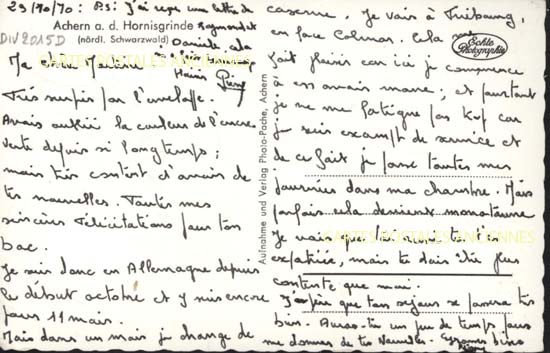 29/10/70 : P.S: J'ai reçu une lettre de
Raymond et
Daniele, cela
Achern a. d. Hornisgrinde
(nördl. Schwarzwald)
DIV 2015D
Ma Chère Martine
Très surpris par l'enveloppe.
Avais oublié la couleur de l'encre
verte depuis si longtemps;
mais très content d'avoir de
tes nouvelles. Toutes mes
sincères Félicitations pour ton
bac.
Je suis donc en Allemagne depuis
le début octobre et y suis encore
pour 11 mois.
Mais dans un mois je change de
Aufnahme und Verlag Photo-Poche, Achern
Echte
Photographie
caserne. Je vais à Fribourg,
en face Colmar. Cela me
fait plaisir car ici je commence
à en avoir marre; et pourtant
je ne me fatigue pas trop car
je suis exempt de service et
de ce fait je passe toutes mes
journées dans ma chambre. Mais
parfois cela devient monotone
Je vois que toi aussi tu t'es
expatriée, mais tu dois être plus
contente que moi.
J'espère que ton séjour se passera très
bien. Auras-tu un peu de temps pour
me donner de tes Nouvelles.
CARTES POSTALES ANCIENNES
CARTES POSTALES ANCIENNES